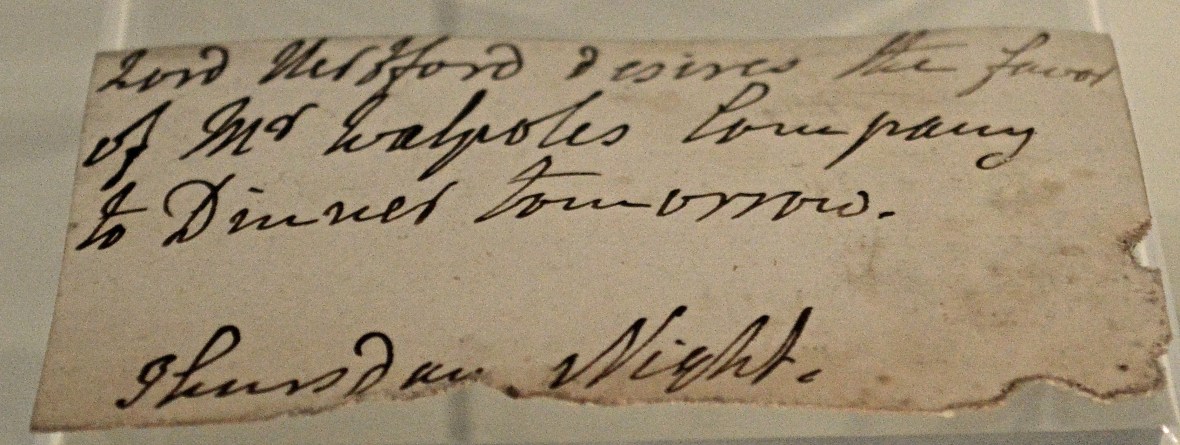 Lord Hertford desires the favor
of Mr Walpoles Company
to Dinner tomorrow.
Thursday Night.